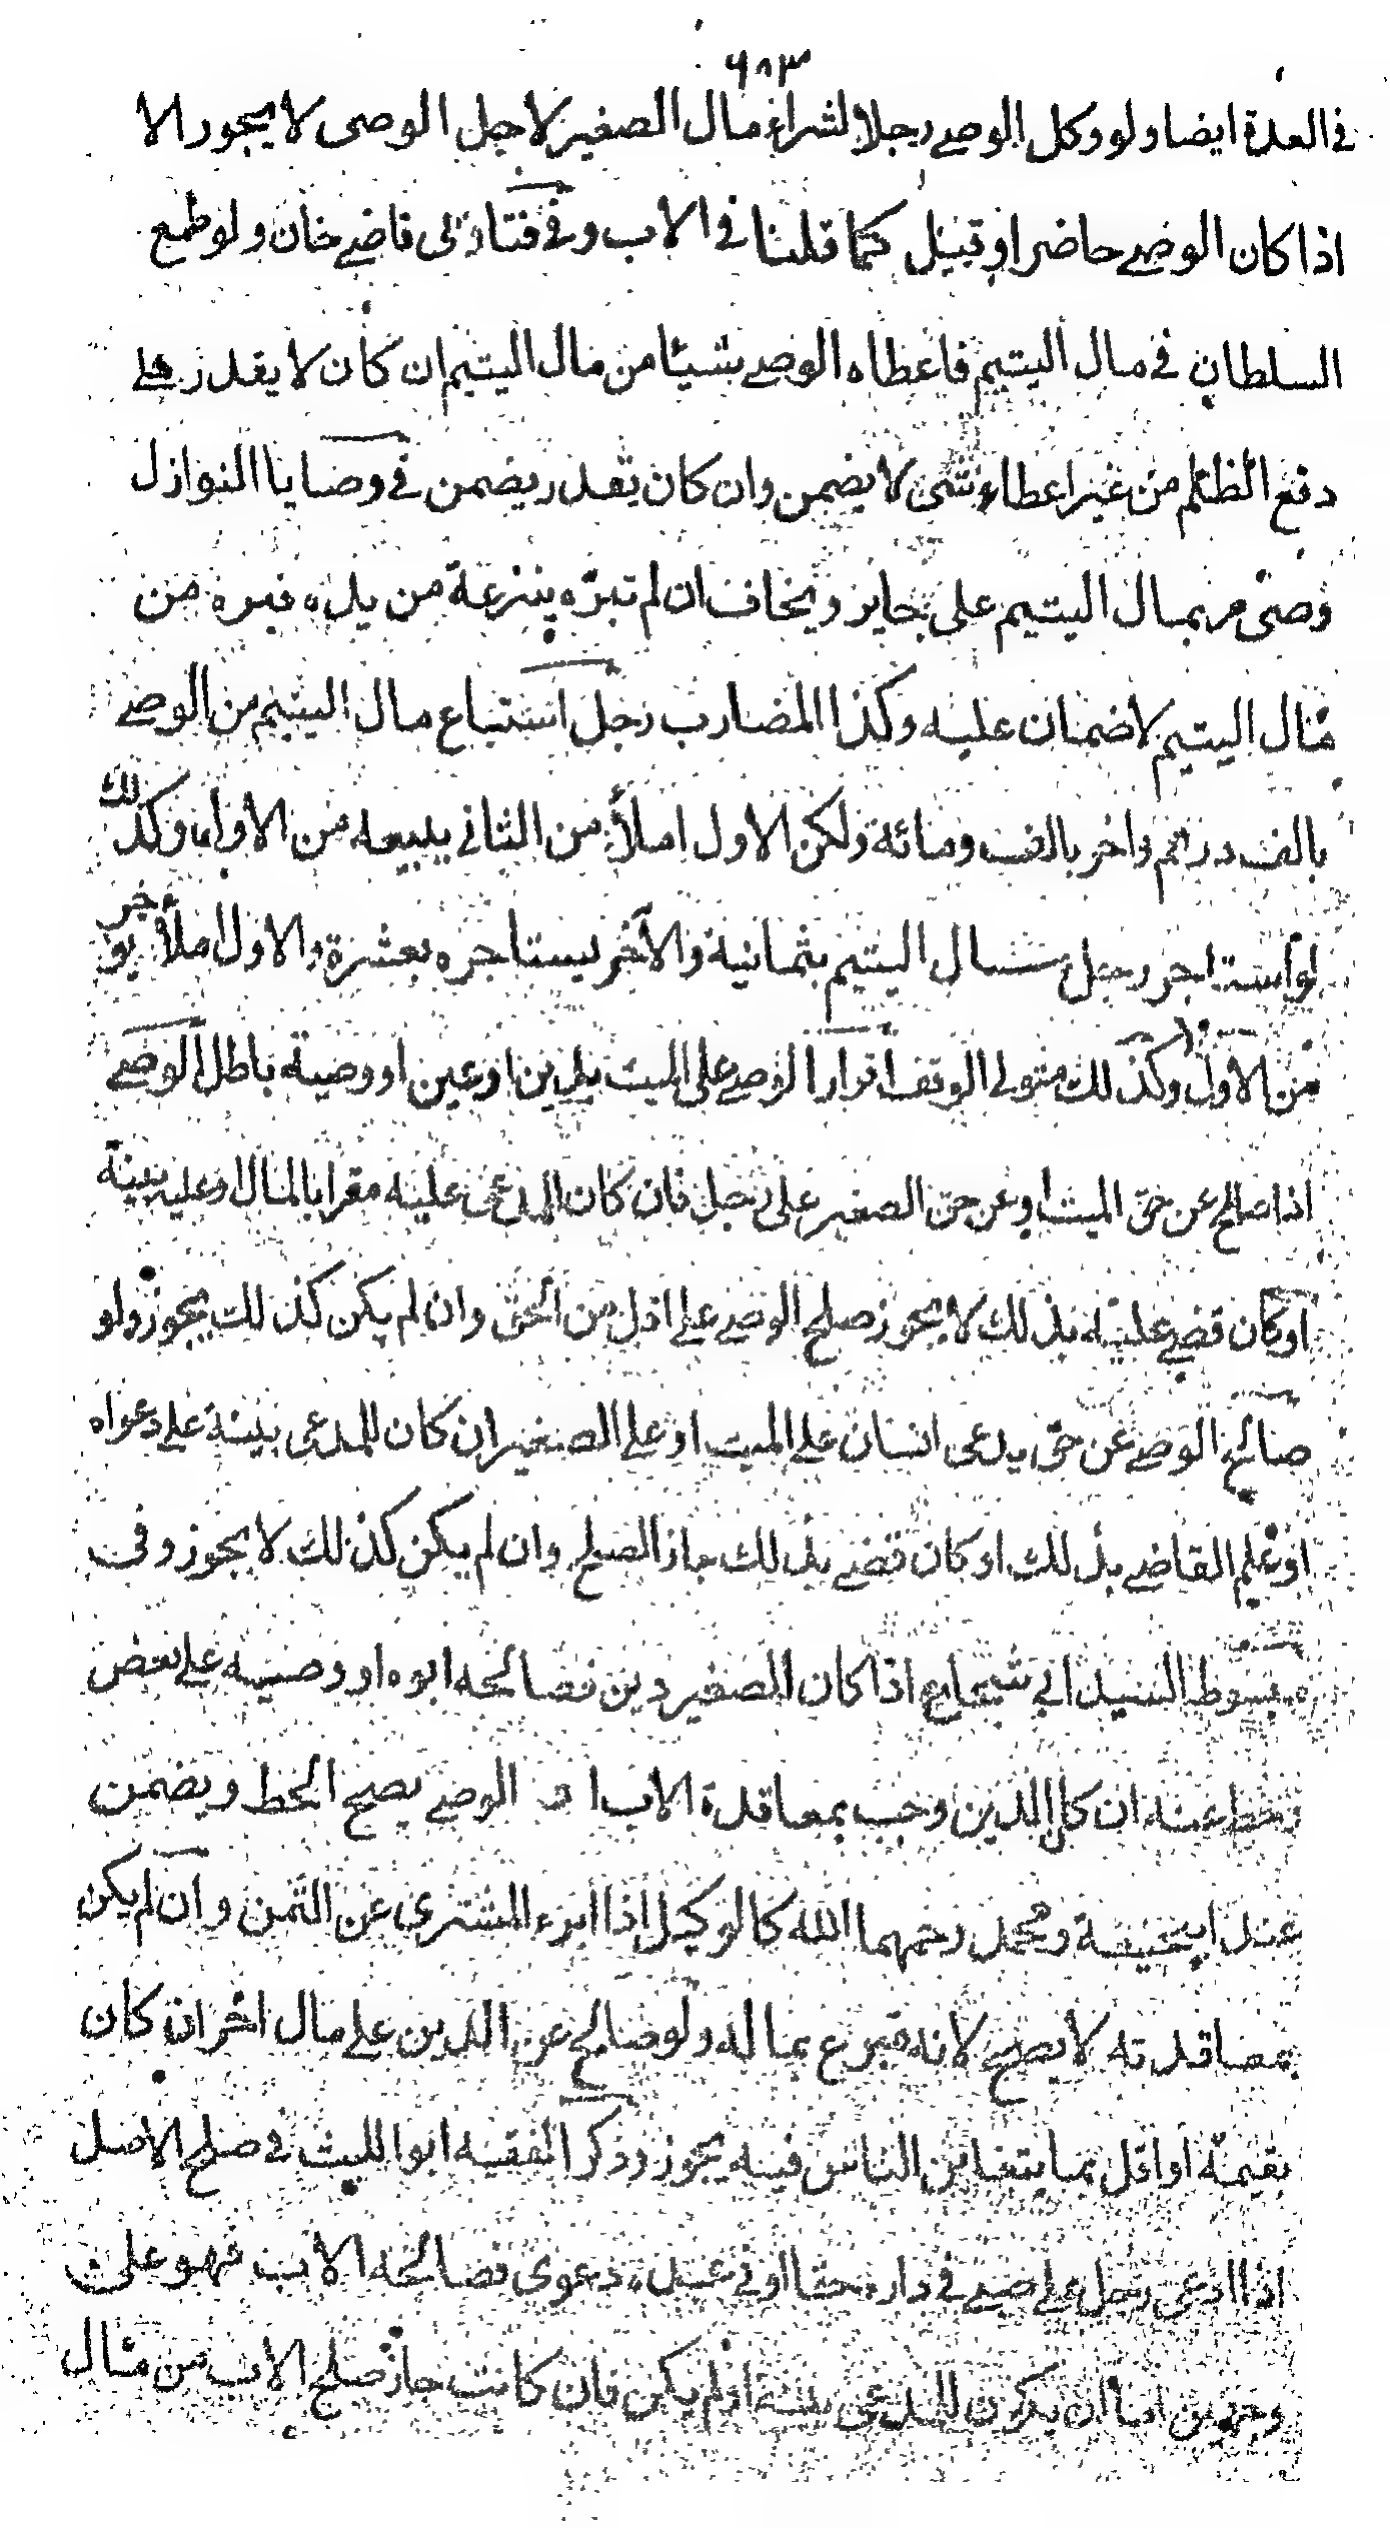 ٦٨٣
في العدة ايضا ولو وكل الوصي رجلا لشراء مال الصغير لاجل الوصى لا يجوز الا
اذا كان الوصي حاضرا وقيل كما قلنا في الاب وفي فتاوى قاضي خان ولو طمع
السلطان في مال اليتيم فاعطاه الوصي شيئا من مال اليتيم ان كان لا يقدر على
دفع الظلم من غير اعطاء شئ لا يضمن وان كان يقدر يضمن في وصايا النوازل
وصى مر بمال اليتيم على جاير ويخاف ان لم تبره ينزعة من يده فبره من
مال اليتيم لا ضمان عليه وكذا المضارب رجل استباع مال اليتيم من الوصي
بالف درهم واخر بالف ومائة ولكن الاول املأ من الثاني يبيعه من الاول وكذلك
لو استاجر رجل مال اليتيم بثمانية والآخر يستاجره بعشرة والاول املأ يوخر
من الاول وكذلك متولي الوقف اقرار الوصي على الميت بدين او عين او وصية باطل الوصي
اذا صالح عن حق الميت او عن حق الصغير على رجل فان كان المدعى عليه مقرا بالمال او عليه بينة
او كان قضي عليه بذلك لا يجوز صلح الوصي على اقل من الحق وان لم يكن كذلك يجوز ولو
صالح الوصي عن حق يدعى انسان على الميت او على الصغير ان كان للمدعى بينة على دعواه
او علم القاضي بذلك او كان قضي بذلك جاز الصلح وان لم يكن كذلك لا يجوز وفي
مبسوط السيد ابي شجاع اذا كان للصغير دين فصالحه ابوه او وصيه على بعض
وحط عنه ان كان الدين وجب بمعاقدة الاب او الوصي يصح الحط ويضمن
عند ابيحنيفة ومحمد رحمهما الله كالوكيل اذا ابرء المشتري عن الثمن وان لم يكن
بمعاقدته لا يصح لانه تبرع بماله ولو صالح عن الدين على مال اخر ان كان
بقيمة او اقل بما يتغابن الناس فيه يجوز وذكر الفقيه ابو الليث في صلح الاصل
اذا ادعى رجل على صبي في دار حقا او في عبد دعوى فصالحه الاب فهو على
وجهين اما ان يكون للمدعى بينة او لم يكن فان كانت جاز صلح الاب من مال